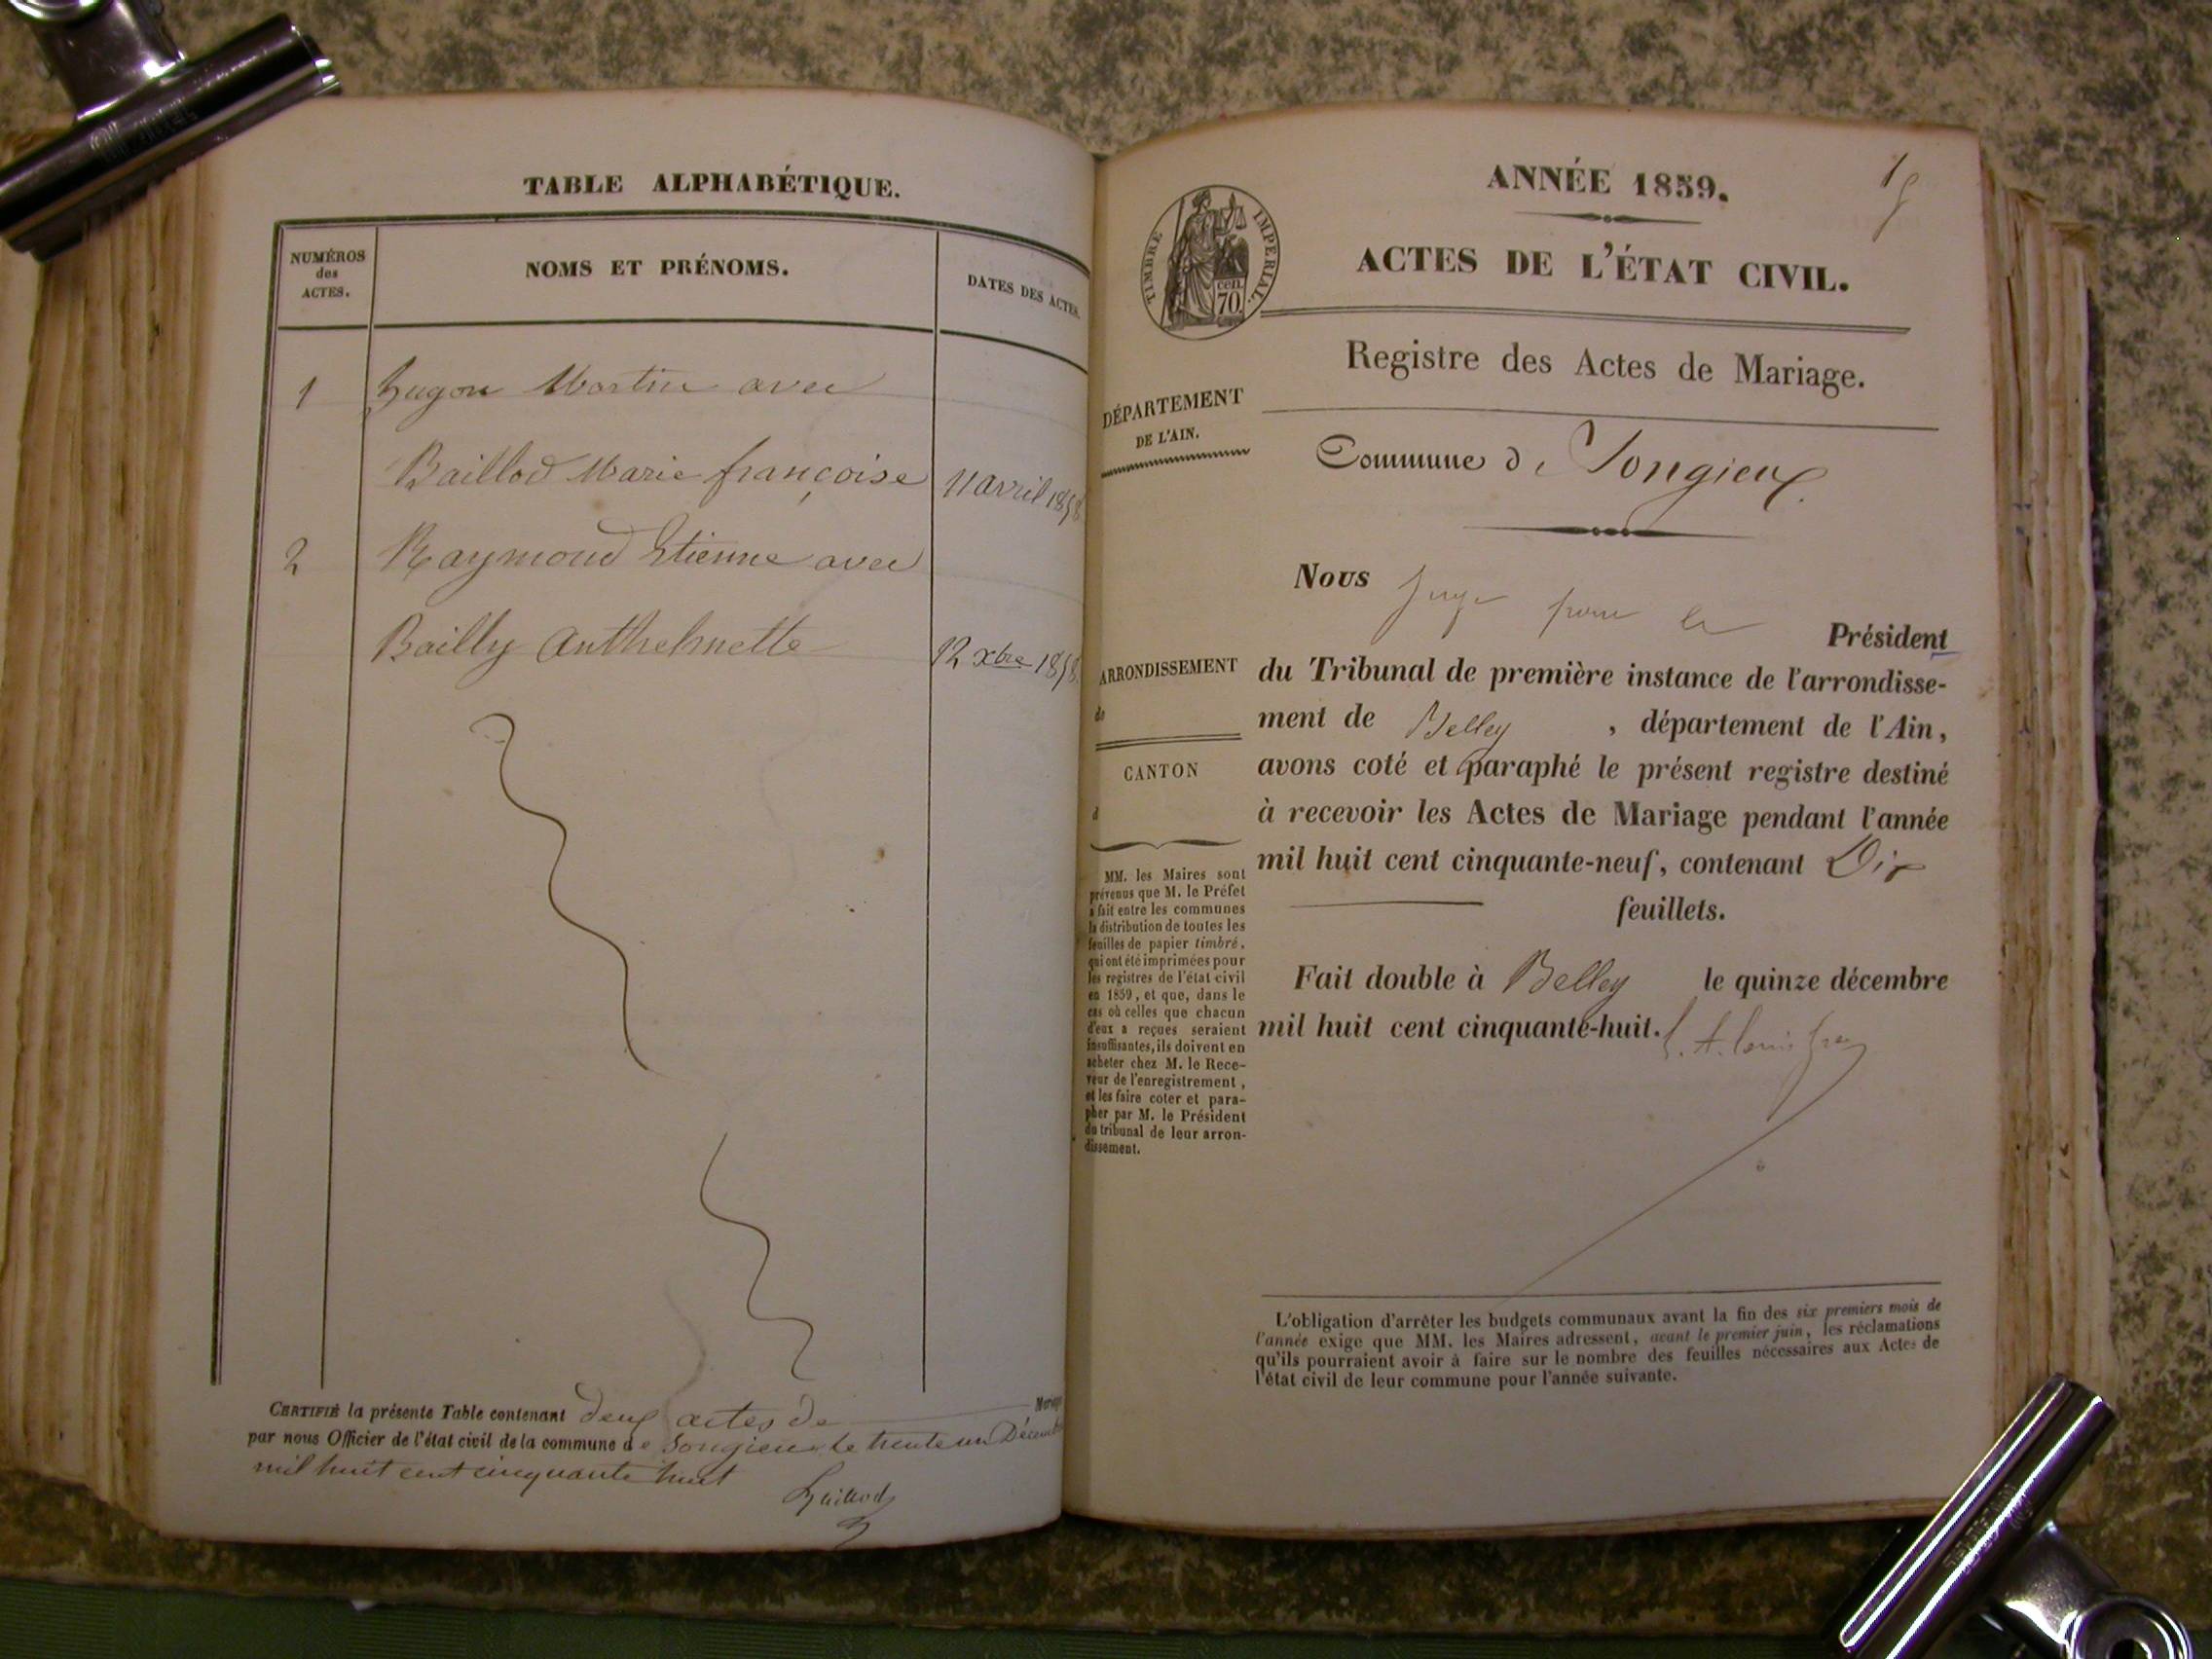 TABLE ALPHABÉTIQUE.
NUMÉROS
des
ACTES.
NOMS ET PRÉNOMS.
DATES DES ACTES.
1 Hugon Martin avec
Baillod Marie françoise 11 avril 1858
2 Raymond Etienne avec
Bailly Anthelmette 12 xbre 1858.
CERTIFIÉ la présente Table contenant deux actes de Mariage
par nous Officier de l'état civil de la commune de Songieu le trente un Décembre
mil huit cent cinquante huit
Baillod
1
ANNÉE 1859.
TIMBRE IMPERIAL.
cen.
70.
ACTES DE L'ÉTAT CIVIL.
Registre des Actes de Mariage.
DÉPARTEMENT
DE L'AIN.
Commune de Songieu.
Nous Juge pour le Président
ARRONDISSEMENT
de
CANTON
d
du Tribunal de première instance de l'arrondisse-
ment de Belley , département de l'Ain,
avons coté et paraphé le présent registre destiné
à recevoir les Actes de Mariage pendant l'année
mil huit cent cinquante-neuf, contenant Dix
feuillets.
Fait double à Belley le quinze décembre
mil huit cent cinquante-huit.
MM. les Maires sont
prévenus que M. le Préfet
a fait entre les communes
la distribution de toutes les
feuilles de papier timbré,
qui ont été imprimées pour
les registres de l'état civil
en 1859, et que, dans le
cas où celles que chacun
d'eux a reçues seraient
insuffisantes, ils doivent en
acheter chez M. le Rece-
veur de l'enregistrement,
et les faire coter et para-
pher par M. le Président
du tribunal de leur arron-
dissement.
L'obligation d'arrêter les budgets communaux avant la fin des six premiers mois de
l'année exige que MM. les Maires adressent, avant le premier juin, les réclamations
qu'ils pourraient avoir à faire sur le nombre des feuilles nécessaires aux Actes de
l'état civil de leur commune pour l'année suivante.